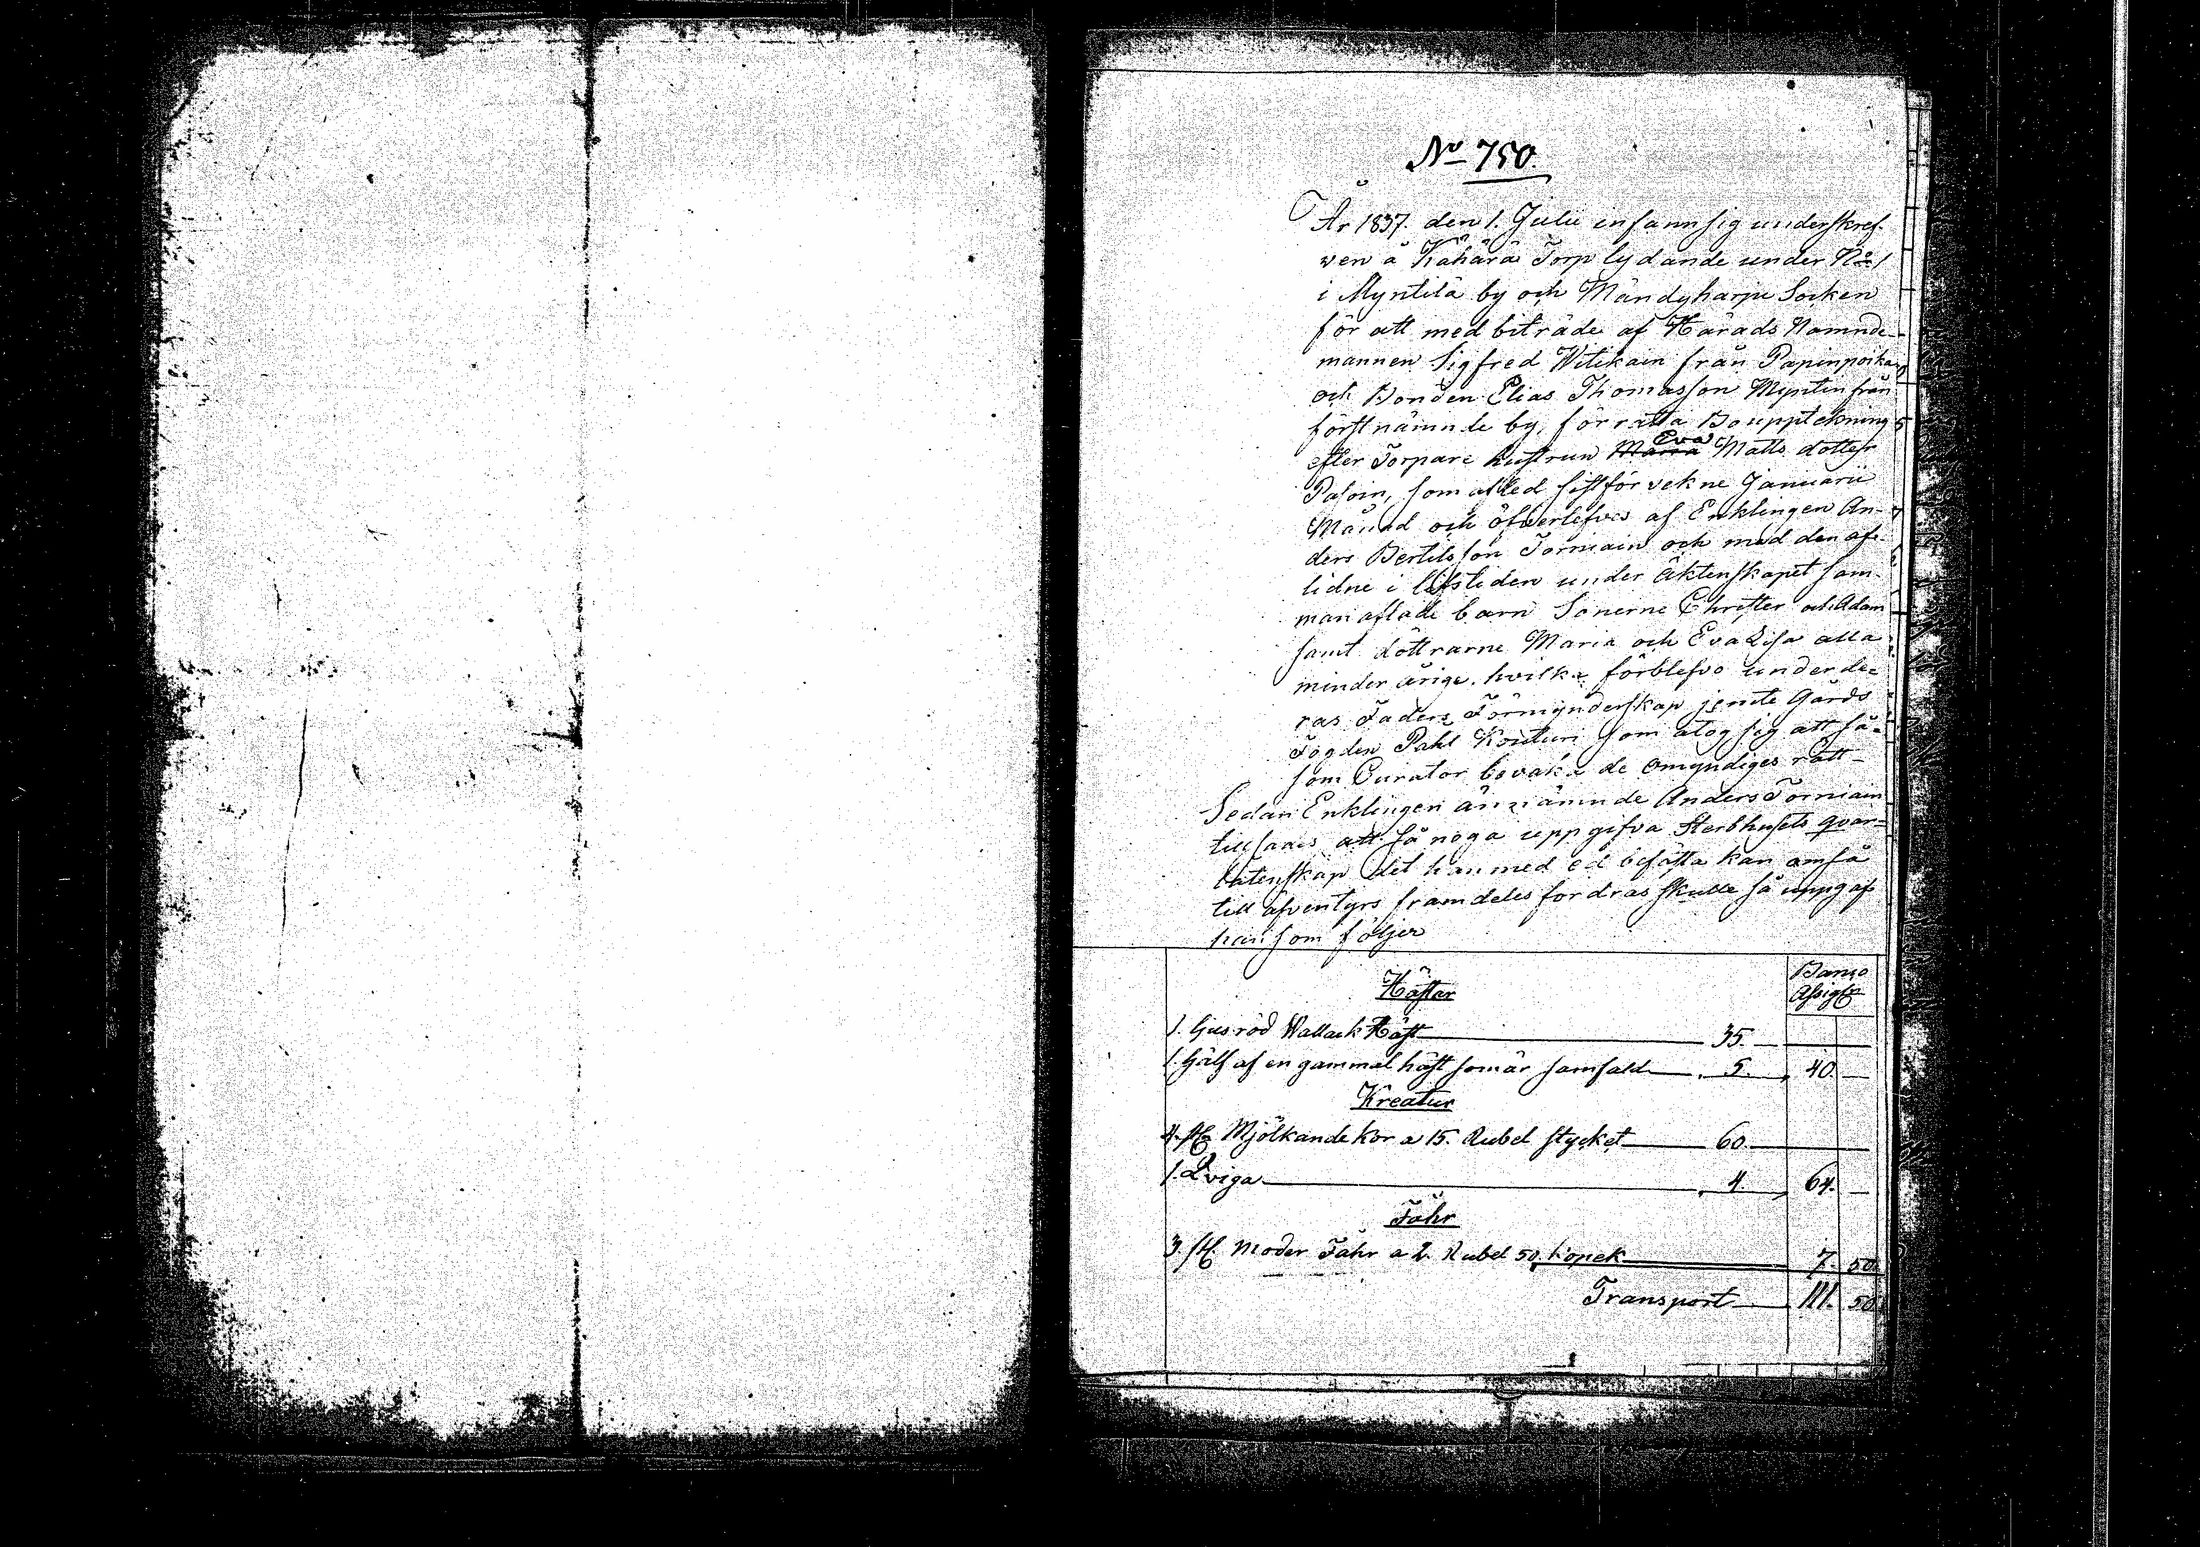 No 750.
År 1837. den 1. Julii infann sig underskref-
ven å Kähärä Torp lydande under No 1
i Myntilä by och Mändyharju Socken
för att med biträde af Härads Nämnde-
mannen Sigfred Witikain från Papinpoika
och Bonden Elias Thomasson Myntin från
förstnämnde by, förrätta Bouppteckning
efter Torpare hustrun Maria Eva Matts dotter
Pasoin, som afled sistförvekne Januarii
Månad och öfverlefves af Enklingen An-
ders Bertilsson Torniain och med den af-
lidne i lifstiden under äktenskapet sam-
man aflade barn Sönerne Christer och Adam
samt döttrarne Maria och Eva Lisa alla
minder årige, hvilka förblefvo under de-
ras Faders Förmynderskap jemte Gårds
Fogden Pahl Kouturi som åtog sig att så-
som Curator bevaka de omyndiges rätt-
Sedan Enklingen än nämnde Anders Torniain
tillsades att så noga uppgifva Sterbhusets qvar-
låtenskap det han med ed befästa kan om så
till äfventyrs framdeles fordras skulle så uppgaf
han som följer
Banco
Assign
Hästar
1. ljusröd Wallack Häst 35. —
1. hälf af en gammal häst som är samfald 5. 40. —
Kreatur
4. st. Mjölkande Kor a 15. Rubel stycket 60.
1. Qviga 4. 64. —
Fåhr
3. st. Moder Fåhr a 2. Rubel 50. kopek 7. 50.
Transport 111. 50.